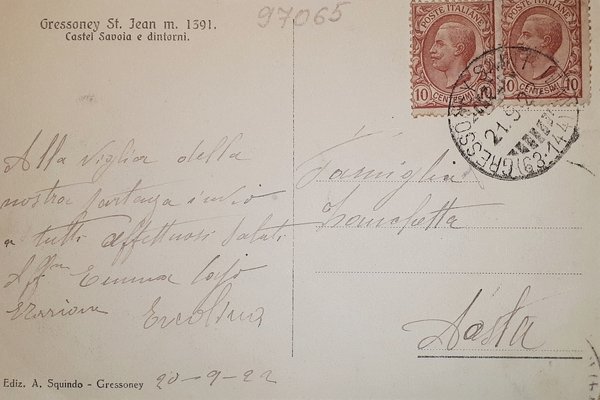 Gressoney St. Jean m. 1391.
Castel Savoia e dintorni.
97065
POSTE ITALIANE
POSTE ITALIANE
10 CENTESIMI 10
10 CENTESIMI
21.9.2
(68-144)
Alla vigilia della
nostra partenza invio
a tutti affettuosi saluti
Aff.
Emma
Ercolina
Famiglia
Aosta
Ediz. A. Squindo - Gressoney
20-9-22